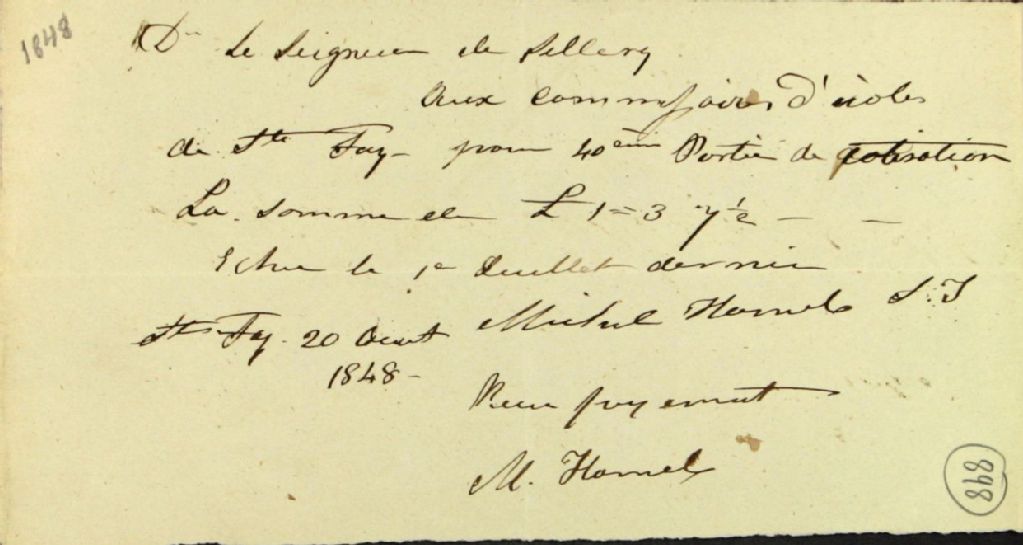 1848
Dr Le Seigneur de Sillery
Aux Commissaires d'écoles
de Ste Foy pour 40ème Partie de Cotisation
La somme de £ 1 = 3 7½ — —
Echue le 1er Juillet dernier
Ste Foy 20 Aout Michel Hamel S.T
1848 -
Recu payement
M. Hamel
898